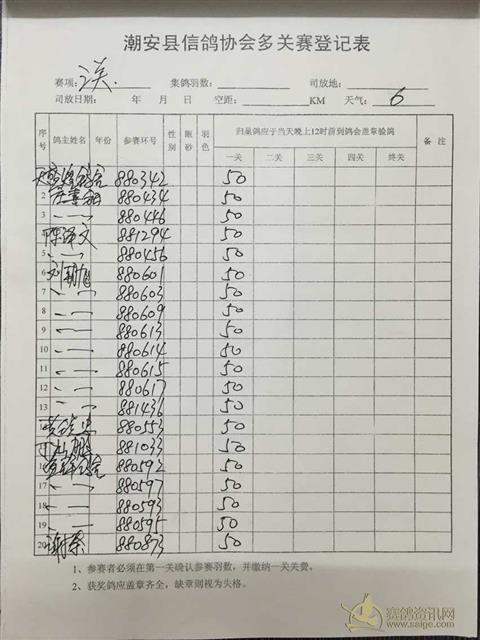 潮安县信鸽协会多关赛登记表
赛项: 集鸽羽数: 司放地:
司放日期: 年 月 日 空距: KM 天气: 6
序号 鸽主姓名 年份 参赛环号 性别 眼砂 羽色 归巢鸽应于当天晚上12时前到鸽会盖章验鸽 备注
一关 二关 三关 四关 终关
880342 50
2 880434 50
3 〃 880446 50
陈泽文 881294 50
5 〃 880456 50
6 880601 50
7 〃 880603 50
8 〃 880609 50
9 〃 880613 50
10 〃 880614 50
11 〃 880615 50
12 〃 880617 50
13 〃 881436 50
880553 50
881033 50
880592 50
17 〃 880597 50
18 〃 880593 50
19 〃 880595 50
20 880873 50
1、参赛者必须在第一关确认参赛羽数,并缴纳一关关费。
2、获奖鸽应盖章齐全,缺章则视为失格。
赛鸽资讯网
www.saige.com